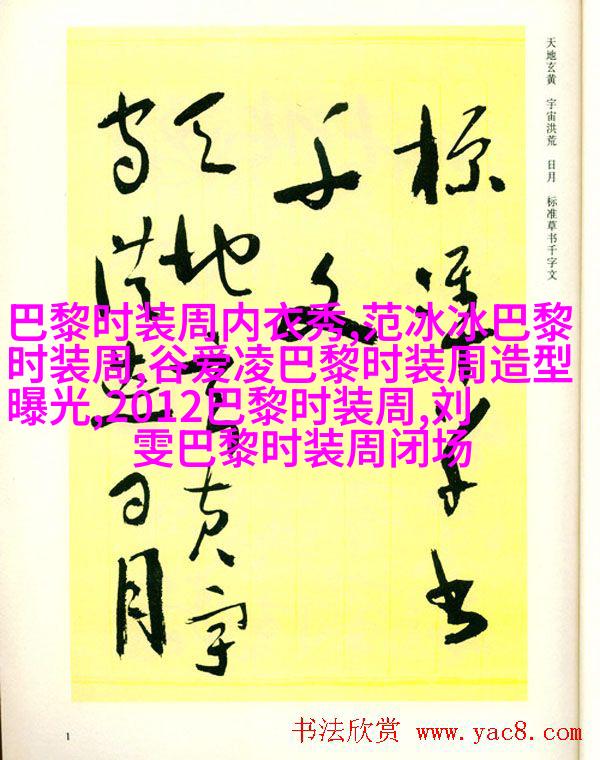 天地玄黄 宇宙洪荒 日月 标准草书千字文
标准草书
千文
天地玄黄宇
宙洪荒日月
巴黎时装周内衣秀,范冰冰巴黎
时装周,谷爱凌巴黎时装周造型
曝光,2012巴黎时装周,刘
雯巴黎时装周闭场
1
书法欣赏 www.yac8.com